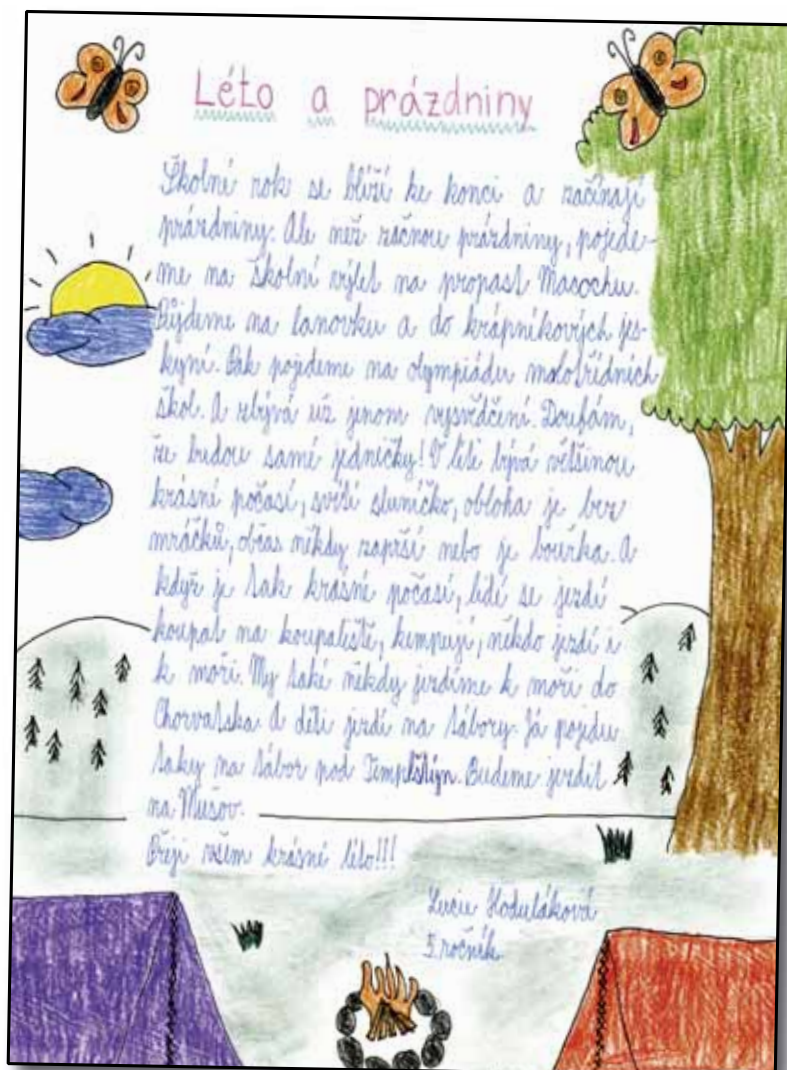 Léto a prázdniny
Školní rok se blíží ke konci a začínají
prázdniny. Ale než začnou prázdniny, pojede-
me na školní výlet na propast Macochu.
Půjdeme na lanovku a do krápníkových jes-
kyní. Pak pojedeme na olympiádu malotřídních
škol. A zbývá už jenom vysvědčení. Doufám,
že budou samé jedničky! V létě bývá většinou
krásné počasí, svítí sluníčko, obloha je bez
mráčků, občas někdy zaprší nebo je bouřka. A
když je tak krásné počasí, lidé se jezdí
koupat na koupaliště, kempují, někdo jezdí i
k moři. My také někdy jezdíme k moři do
Chorvatska. A děti jezdí na tábory. Já pojedu
taky na tábor pod Templštýn. Budeme jezdit
na Mušov.
Přeji všem krásné léto!!!
Lucie Hoduláková
5. ročník